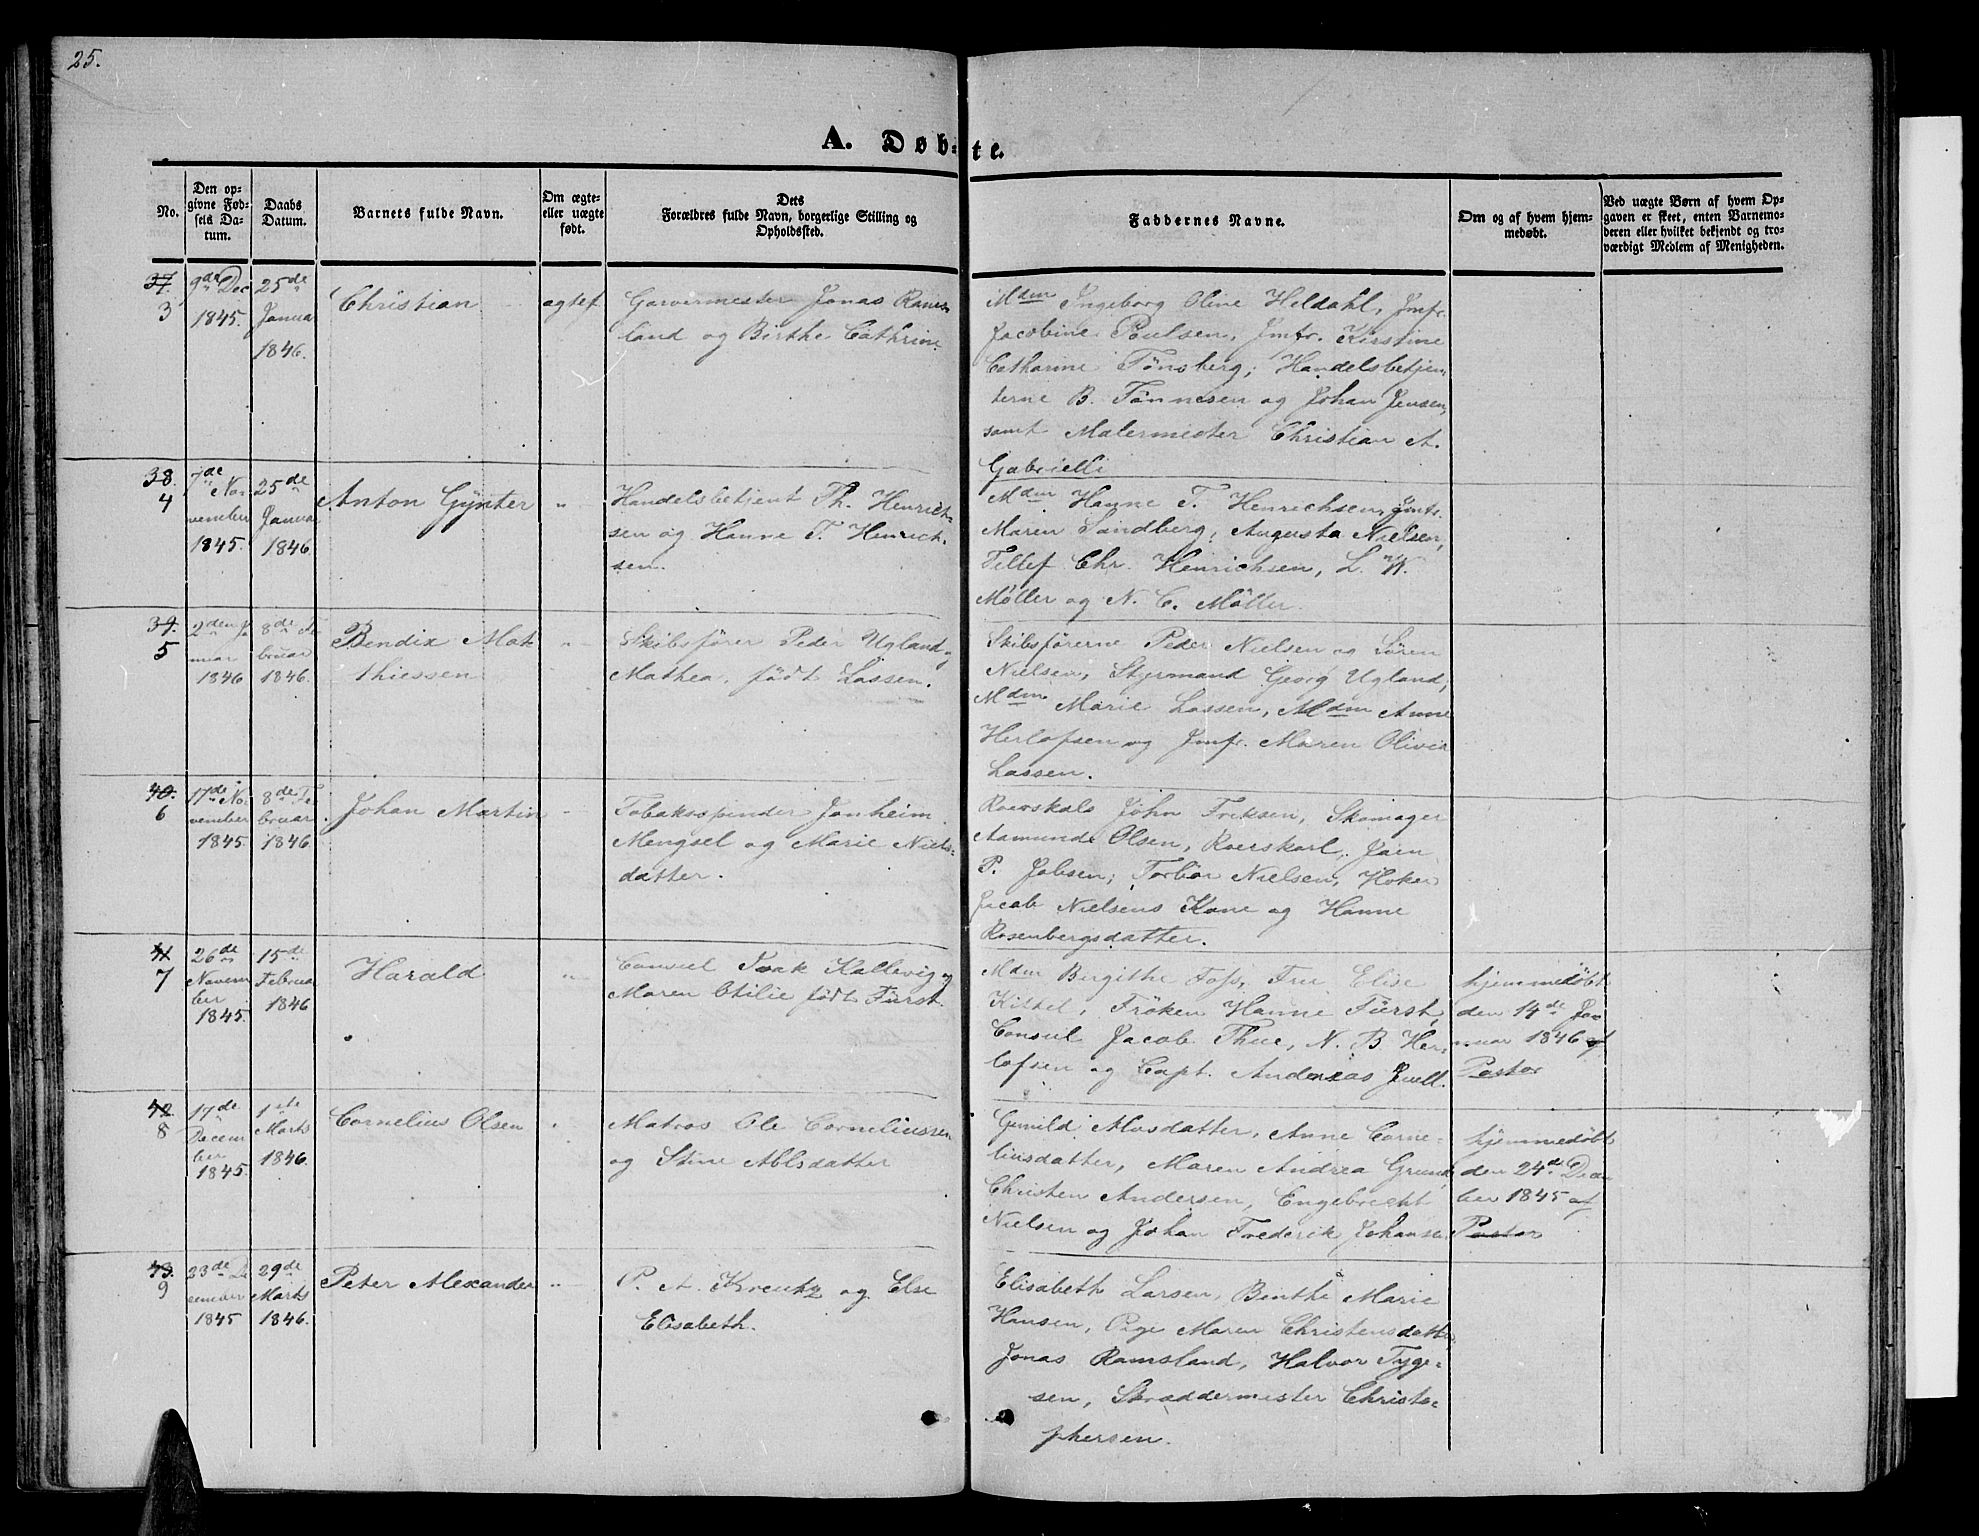 25.
A. Døbte.
No.
Den op-
givne Fød-
sels Da-
tum.
Daabs
Datum.
Barnets fulde Navn.
Om ægte-
eller uægte
født.
Dets
Forældres fulde Navn, borgerlige Stilling og
Opholdssted.
Faddernes Navne.
Om og af hvem hjem-
medøbt.
Ved uægte Børn af hvem Op-
gaven er skeet, enten Barnemo-
deren eller hvilket bekjendt og tro-
værdigt Medlem af Menigheden.
37.
3
9de Dec
1845.
25de
Janua
1846.
Christian
ægtef.
Garvermester Jonas Rams
land og Birthe Cathrine
Mdm Ingeborg Oline Heldahl, Jmfr.
Jacobine Poulsen, Jmfr. Kirstine
Catharine Tönsberg, Handelsbetjen-
terne B. Tönnesen og Johan Jensen,
samt Malermester Christian A.
Gabrielli
38.
4
7de No-
vember
1845.
25de
Janua
1846
Anton Gynter
"
Handelsbetjent Th. Henrich-
sen og Hanne T. Henrich-
sen.
Mdm Hanne T. Henrichsen, Jmfr.
Maren Sandberg, Augusta Nielsen,
Tellef Chr. Henrichsen, L. W.
Møller og N. C. Møller.
39.
5
2den Ja
nuar
1846
8de Fe
bruar
1846.
Bendix Mat
thiessen
"
Skibsfører Peder Ugland og
Mathea, født Lassen.
Skibsförerne Peder Nielsen og Sören
Nielsen, Styrmand Georg Ugland,
Mdm Marie Lassen, Mdm Anne
Herlofsen og Jmfr. Maren Olivia
Lassen.
40.
6
17de No-
vember
1845
8de Fe
bruar
1846
Johan Martin
"
Tobaksspinder Jonheim
Mengsel og Marie Niels-
datter.
Roerskarls John Eriksen, Skomager
Aamunde Olsen, Roerskarl
P. Jobsen, Torbör Nielsen, Höker
Jacob Nielsens Kone og Hanne
Rosenbergsdatter.
41
7
26de
Novem
ber
1845.
15de
Februa
1846
Harald
"
Consul Isak Kallevig og
Maren Otilie født Fürst.
Mdm Birgithe Foss, Fru Elise
Kittel, Fröken Hanne Fürst,
Consul Jacob Thue, N. B. Her-
lofsen og Capt. Andreas Juell.
hjemmedøbt
den 14de Ja
nuar 1846 af
Pastor
42
8
17de
Decem
ber
1845.
1ste
Marts
1846.
Cornelius Olsen
"
Matros Ole Corneliussen
og Stine Ablsdatter
Gunild Mosdatter, Anne Corne-
liusdatter, Maren Andrea Grund,
Christen Andersen, Engebrecht
Nielsen og Johan Frederik Johansen
hjemmedøbt
den 24de Decm
ber 1845 af
Pastor
43.
9
23de De
cember
1845
29de
Marts
1846.
Peter Alexander
"
P. A. Kreutz og Else
Elisabeth.
Elisabeth Larsen, Benthe Marie
Hansen, Pige Maren Christensdatter
Jonas Ramsland, Halvor Tyge-
sen, Skræddermester Christo-
phersen.